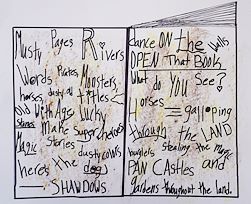 Musty Pages Rivers
Words Pirates, Monsters,
horses, dusty old titles
Old With Age Witchy
Stories Make Superheroes
Magic Stories dusty cows
herds The dog
SHAWDOWS
Dance ON the Walls
OPEN That Book
What do YOU See?
Horses galloping
through the LAND
burglers stealing the magic
PAN CAStles and
gardens throughout the land.